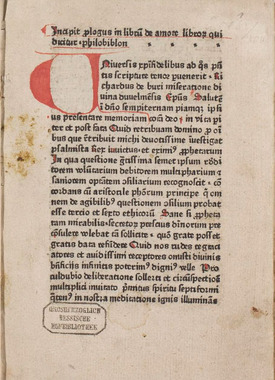 Incipit plogus in librū de amore librorꝫ qui
dicitur philobiblon
Uniuersis xp̄ifidelibus ad q̄s p̄n
tis scripture tenor puenerit Ri
chardus de buri miseratione di
uina dunelmēsis Ep̄us Salutē
ī dn̄o sempiternam piamqꝫ ipsi
us presentare memoriam coram deo ī in vita pi
ter et post fata Quid retribuam domino ꝓ oī
bus que retribuit michi deuotissime īuestigat
psalmista Rex īuictus et eximiꝰ ꝓphetarum
In qua questione grātissima semet ipsum rddi
torem voluntarium debitorem multipharium et
saniorem optātem ɔsiliarium recognoscit
cordans cū aristotile phōrum principe q om
nem de agibilibꝫ questionem ɔsilium probat
esse tercio et sexto ethicorū Sane si ꝓphe
ta mirabilis secretorꝫ prescius diuinorum pre
ɔsulere volebat
grata data refūdere Quid nos rudes regraci
atores et auidissimi receptores onusti diuinis
bn̄ficijs infinitis poterimꝰ dignꝰ velle Pro
culdubio deliberatione sollerti et circūspectiōi
multiplici inuitato p̄mitus spiritu septiformi
qtenꝰ in nostra meditatione ignis illuminās
GROSHERZOGLICH
HESSISCHE
HOFBIBLIOTHEK